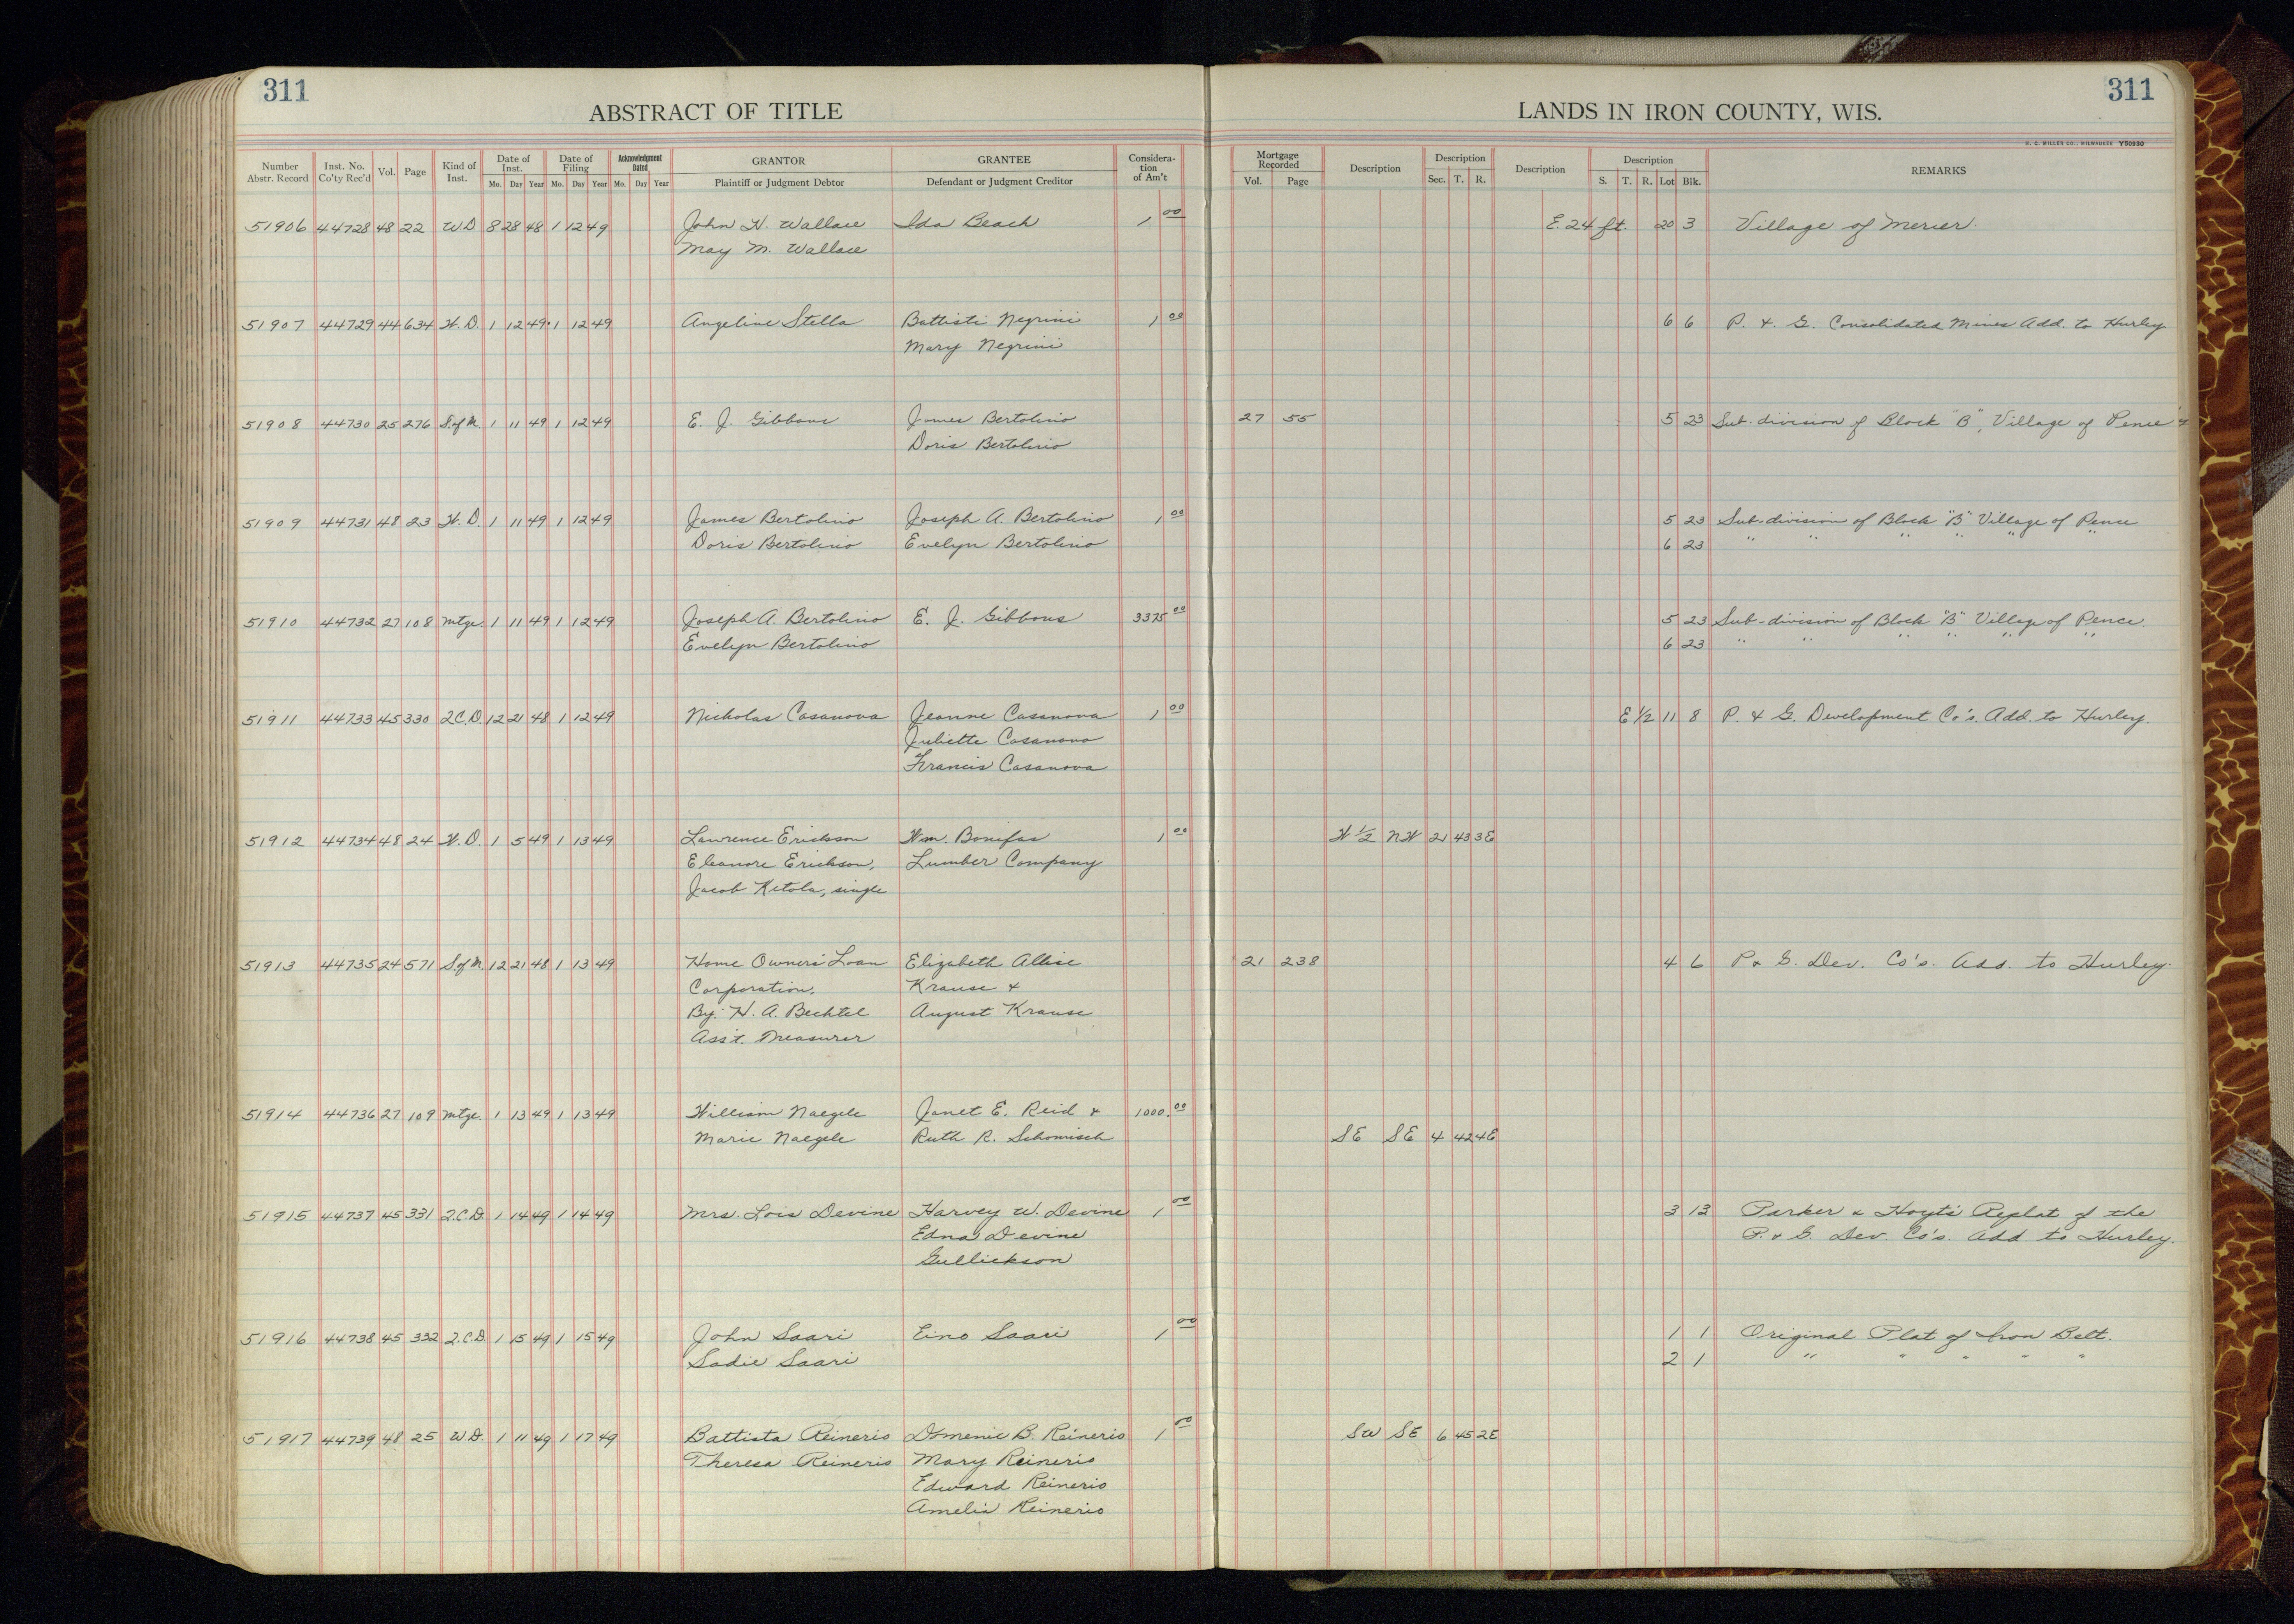 311
311
ABSTRACT OF TITLE
LANDS IN IRON COUNTY, WIS.
H. C. MILLER CO., MILWAUKEE Y50930
Number Abstr. Record Inst. No. Co'ty Rec'd Vol. Page Kind of Inst. Date of Inst. Mo. Day Year Date of Filing Mo. Day Year Acknowledgment Dated Mo. Day Year GRANTOR Plaintiff or Judgment Debtor GRANTEE Defendant or Judgment Creditor Considera-tion of Am't Mortgage Recorded Vol. Page Description Description Sec. T. R. Description Description S. T. R. Lot Blk. REMARKS
51906 44728 48 22 W.D 8 28 48 1 12 49 John H. Wallace Ida Beach 1 00 E. 24 ft. 20 3 Village of Mercer.
May M. Wallace
51907 44729 44 634 W. D. 1 12 49 1 12 49 Angeline Stella Battisti Negrini 1 00 6 6 P. & G. Consolidated Mines Add. to Hurley
Mary Negrini
51908 44730 25 276 S. of M. 1 11 49 1 12 49 E. J. Gibbons James Bertolino 27 55 5 23 Sub-division of Block "B", Village of Pence
Doris Bertolino
51909 44731 48 23 W. D. 1 11 49 1 12 49 James Bertolino Joseph A. Bertolino 1 00 5 23 Sub-division of Block "B" Village of Pence
Doris Bertolino Evelyn Bertolino 6 23 " " " " " "
51910 44732 27 108 Mtge. 1 11 49 1 12 49 Joseph A. Bertolino E. J. Gibbons 3375 00 5 23 Sub-division of Block "B" Village of Pence.
Evelyn Bertolino 6 23 " " " " " "
51911 44733 45 330 Q.C.D. 12 21 48 1 12 49 Nicholas Casanova Jeanne Casanova 1 00 E 1/2 11 8 P. & G. Development Co's. Add. to Hurley.
Juliette Casanova
Francis Casanova
51912 44734 48 24 W. D. 1 5 49 1 13 49 Lawrence Erickson Wm. Bonifas 1 00 W 1/2 NW 21 43 3E
Eleanore Erickson, Lumber Company
Jacob Ketola, single
51913 44735 24 571 S. of M. 12 21 48 1 13 49 Home Owners' Loan Elizabeth Allise 21 238 4 6 P & G. Dev. Co's. Add. to Hurley.
Corporation, Krause &
By: H. A. Bechtel August Krause
Ass't. Treasurer
51914 44736 27 109 Mtge. 1 13 49 1 13 49 William Naegele Janet E. Reid & 1000. 00
Marie Naegele Ruth R. Schomisch SE SE 4 42 4E
51915 44737 45 331 Q.C.D. 1 14 49 1 14 49 Mrs. Lois Devine Harvey W. Devine 1 00 3 13 Parker & Hoyt's Replat of the
Edna Devine P. & G. Dev Co's. Add. to Hurley.
Gullickson
51916 44738 45 332 Q.C.D. 1 15 49 1 15 49 John Saari Eino Saari 1 00 1 1 Original Plat of Iron Belt.
Sadie Saari 2 1 " " " " "
51917 44739 48 25 W.D. 1 11 49 1 17 49 Battista Reinerio Domenic B. Reinerio 1 00 SW SE 6 45 2E
Theresa Reinerio Mary Reinerio
Edward Reinerio
Amelia Reinerio